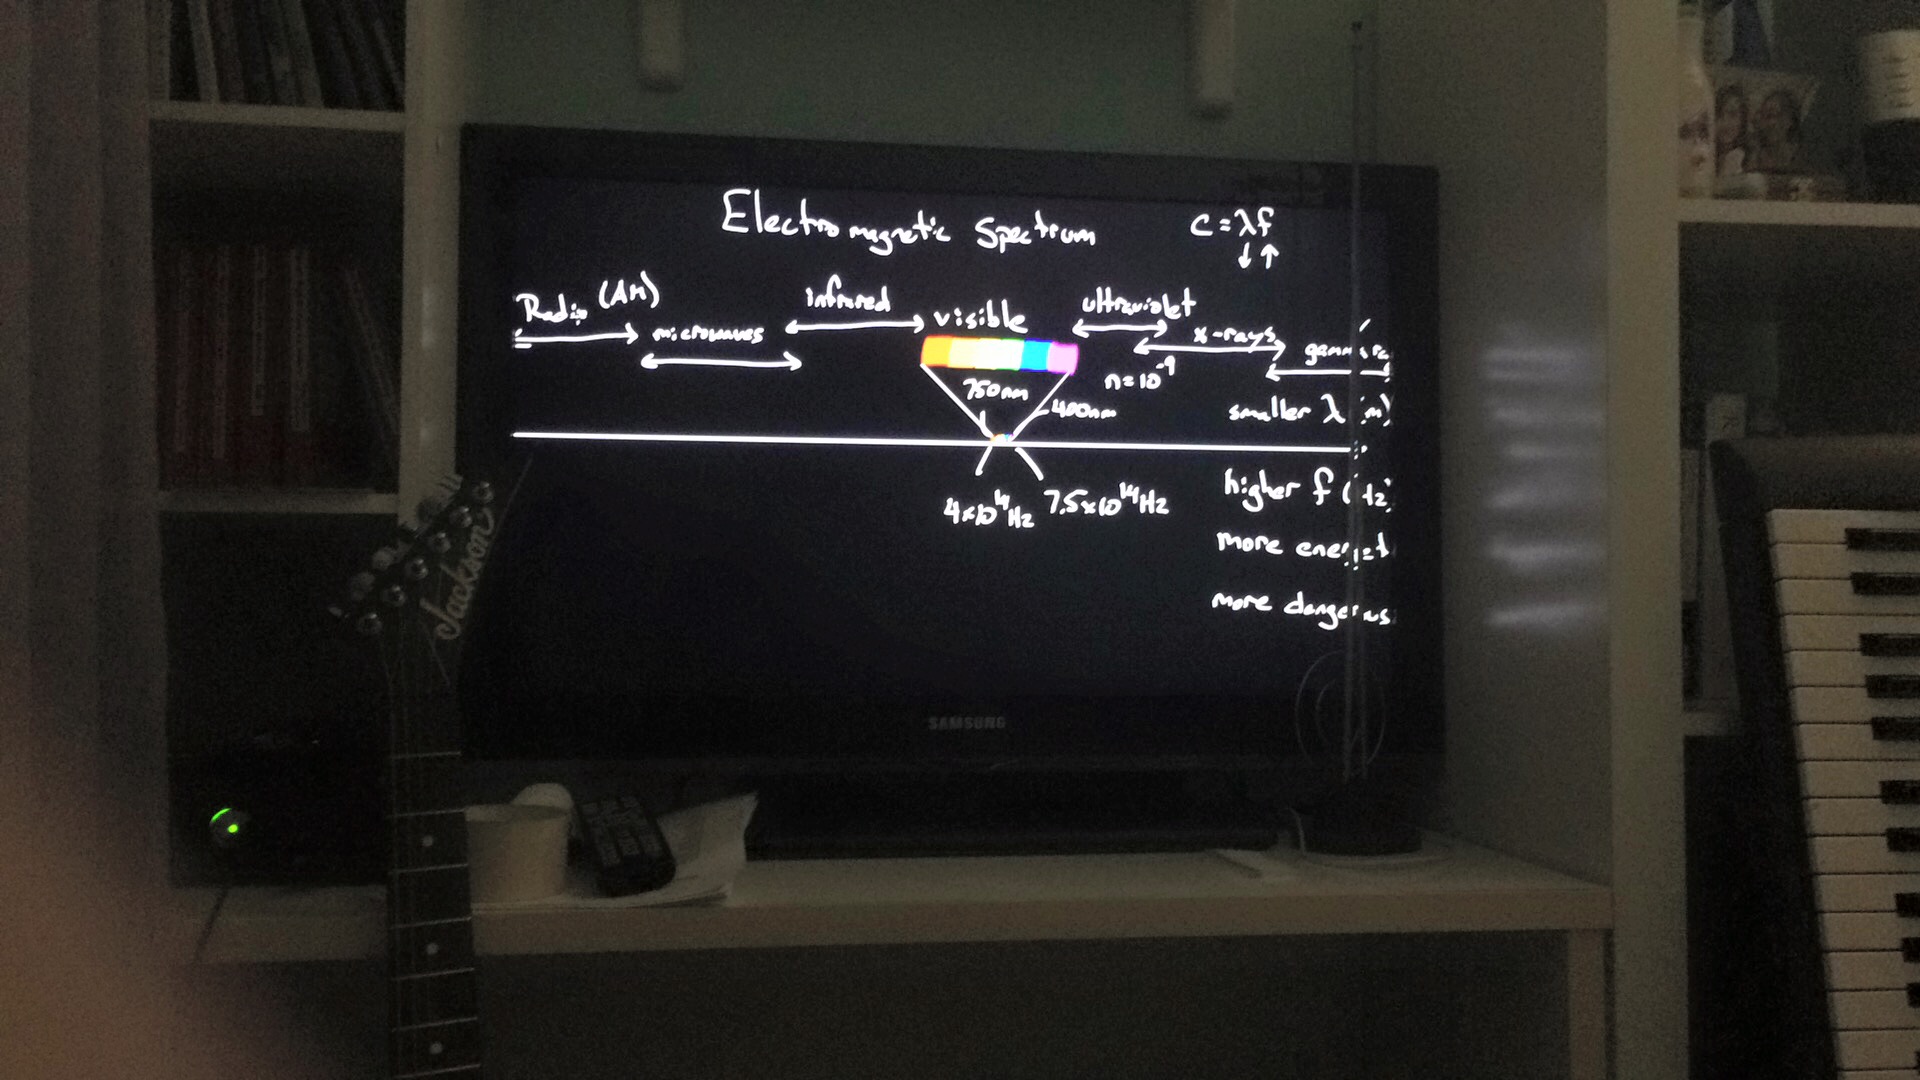 Electromagnetic Spectrum
c = λf
↓↑
Radio (AM)
microwaves
infrared
visible
ultraviolet
x-rays
n=10⁻⁹
750nm
400nm
smaller λ (m)
4x10¹⁴Hz
7.5x10¹⁴Hz
higher f
more
more
Jackson
SAMSUNG